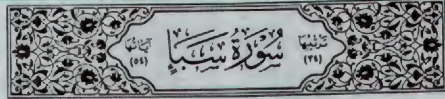 ترتيبها (٣٤) سُورَةُ سَبَإٍ آياتها (٥٤)